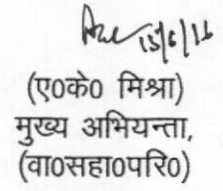 15/6/16
(ए0के0 मिश्रा)
मुख्य अभियन्ता,
(वा0सहा0परि0)